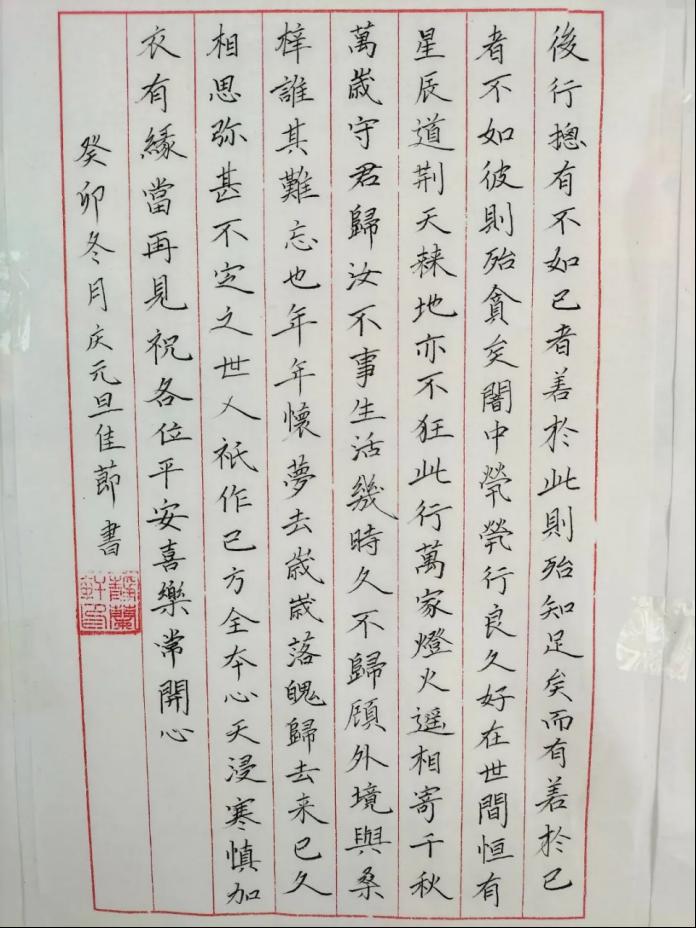 後行摠有不如己者善於此則殆知足矣而有善於己
者不如彼則殆貪矣闇中煢煢行良久好在世間恒有
星辰道荆天棘地亦不狂此行萬家燈火遥相寄千秋
萬歲守君歸汝不事生活幾時久不歸顧外境與桑
梓誰其難忘也年年懷夢去歲歲落魄歸去来已久
相思弥甚不定之世乂祇作己方全本心天浸寒慎加
衣有緣當再見祝各位平安喜樂常開心
癸卯冬月庆元旦佳節書